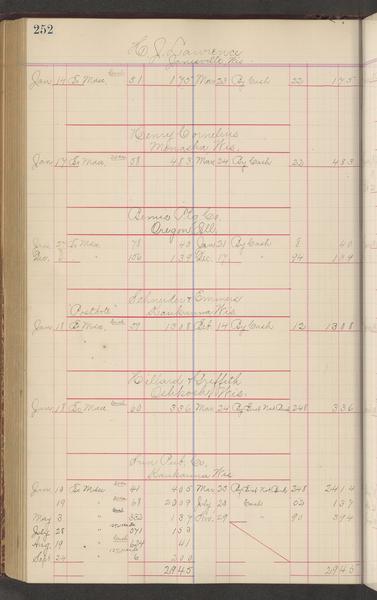 252
H. J. Lawrence
Janesville Wis.
Jan 14 To Mdse. 51 1 75 Mar 23 By Cash 22 1 75
Henry Cornelius
Menasha Wis.
Jan 17 To Mdse. 58 4 83 Mar 24 By Cash 22 4 83
Bemis Co.
Oregon Ill.
To Mdse. 78 40 Jan 21 By Cash 8 40
Dec. " 106 1 39 Dec. 17 " 94 1 39
Schneider & Emmers
"Posthole" Kaukauna Wis
Jan 18 To Mdse. 59 13 08 Oct 14 By Cash 12 13 08
Hilliard & Griffith
Oshkosh, Wis.
Jan 18 To Mdse 60 3 36 Mar 24 By First Nat Bank 248 3 36
Pub. Co.
Kaukauna Wis
Jan 10 To Mdse 41 4 05 Mar 25 By First Nat Bank 248 24 14
19 " 68 20 09 July 20 Cash 52 1 37
May 3 " 332 1 37 29 " 90 3 94
July 28 " 571 1 53
Aug 19 " 41
Sept 24 " 6 2 00
29 45 29 45